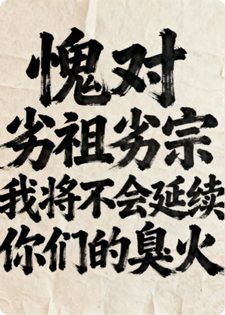 愧对
劣祖劣宗
我将不会延续
你们的臭火